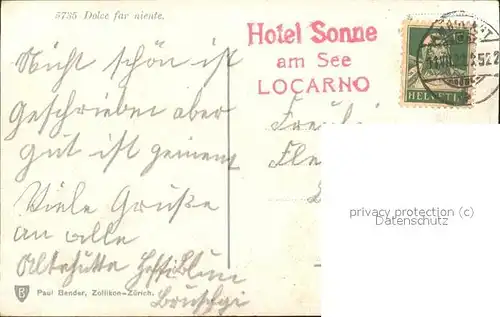 5735 Dolce far niente.
Hotel Sonne
am See
LOCARNO
HELVETIA
Nicht schön ist
geschrieben aber
gut ist gemeint
Viele Grüße
an alle
Fräulein
privacy protection (c)
Datenschutz
Paul Bender, Zollikon-Zürich.